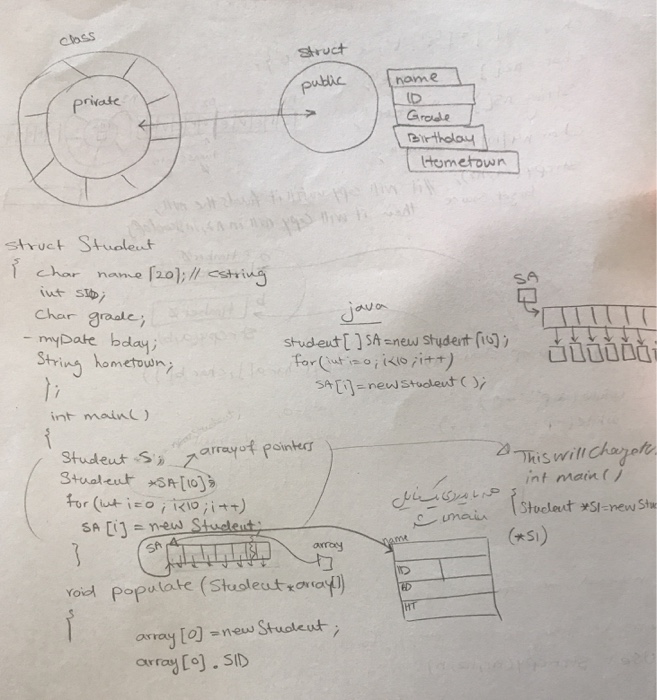 class
private
struct
public
name
ID
Grade
Birthday
Hometown
struct Student
{ char name [20]; // cstring
int SID;
char grade;
- myDate bday;
String hometown;
};
java
student[ ] SA = new student [10];
for(int i=0; i<10; i++)
SA[i] = new student( );
SA
int main()
{
Student S;
array of pointers
Student *SA[10];
for (int i=0; i<10; i++)
SA [i] = new Student;
}
This will
int main()
{ Student *S1=new Stu
(*S1)
main
SA
array
name
ID
BD
HT
void populate (Student *array[])
{
array [0] = new Student;
array[0] . SID